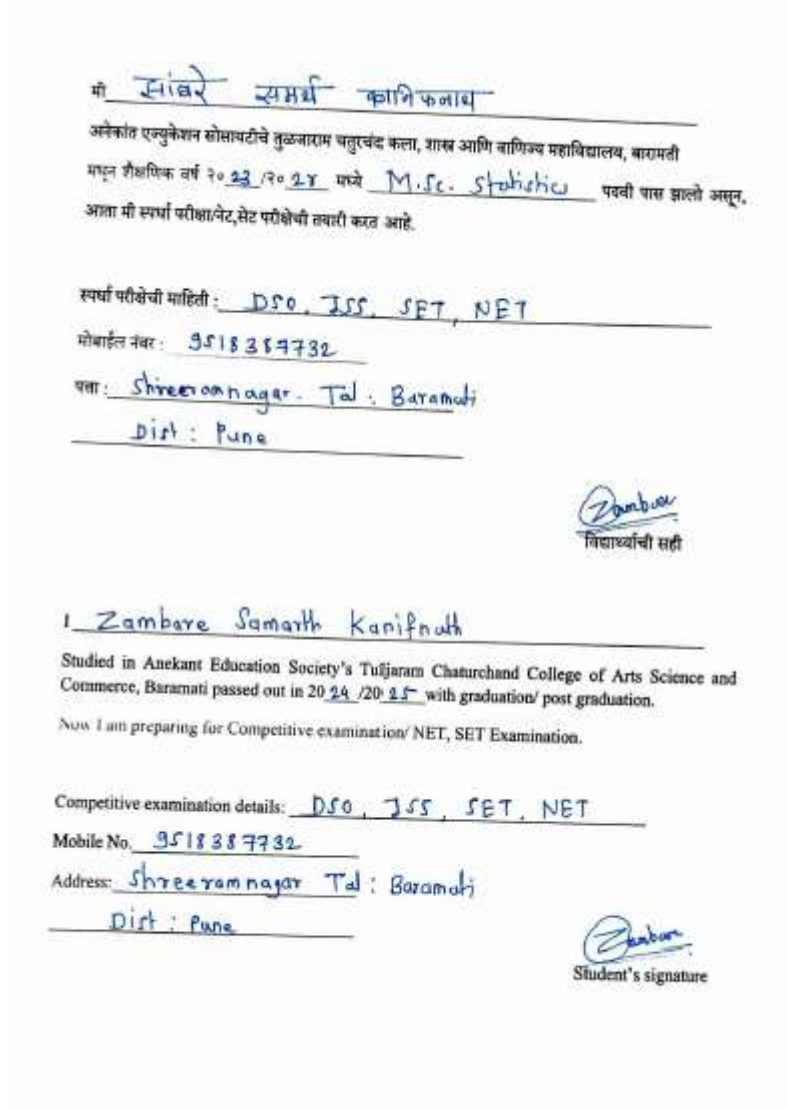 मी सांबरे समर्थ कानिफनाथ
अनेकांत एज्युकेशन सोसायटीचे तुळजाराम चतुरचंद कला, शास्त्र आणि वाणिज्य महाविद्यालय, बारामती
मधून शैक्षणिक वर्ष २०23/२०24 मध्ये M.Sc. Statistics पदवी पास झालो असून,
आता मी स्पर्धा परीक्षा/नेट,सेट परीक्षेची तयारी करत आहे.
स्पर्धा परीक्षेची माहिती : DSO, ISS, SET, NET
मोबाईल नंबर : 9518387732
पत्ता : Shreeramnagar. Tal : Baramati
Dist : Pune
Zambare
विद्यार्थ्याची सही
I Zambare Samarth Kanifnath
Studied in Anekant Education Society's Tuljaram Chaturchand College of Arts Science and
Commerce, Baramati passed out in 2024/2025 with graduation/ post graduation.
Now I am preparing for Competitive examination/ NET, SET Examination.
Competitive examination details: DSO, ISS, SET, NET
Mobile No. 9518387732
Address: Shreeramnagar Tal : Baramati
Dist : Pune
Zambare
Student's signature